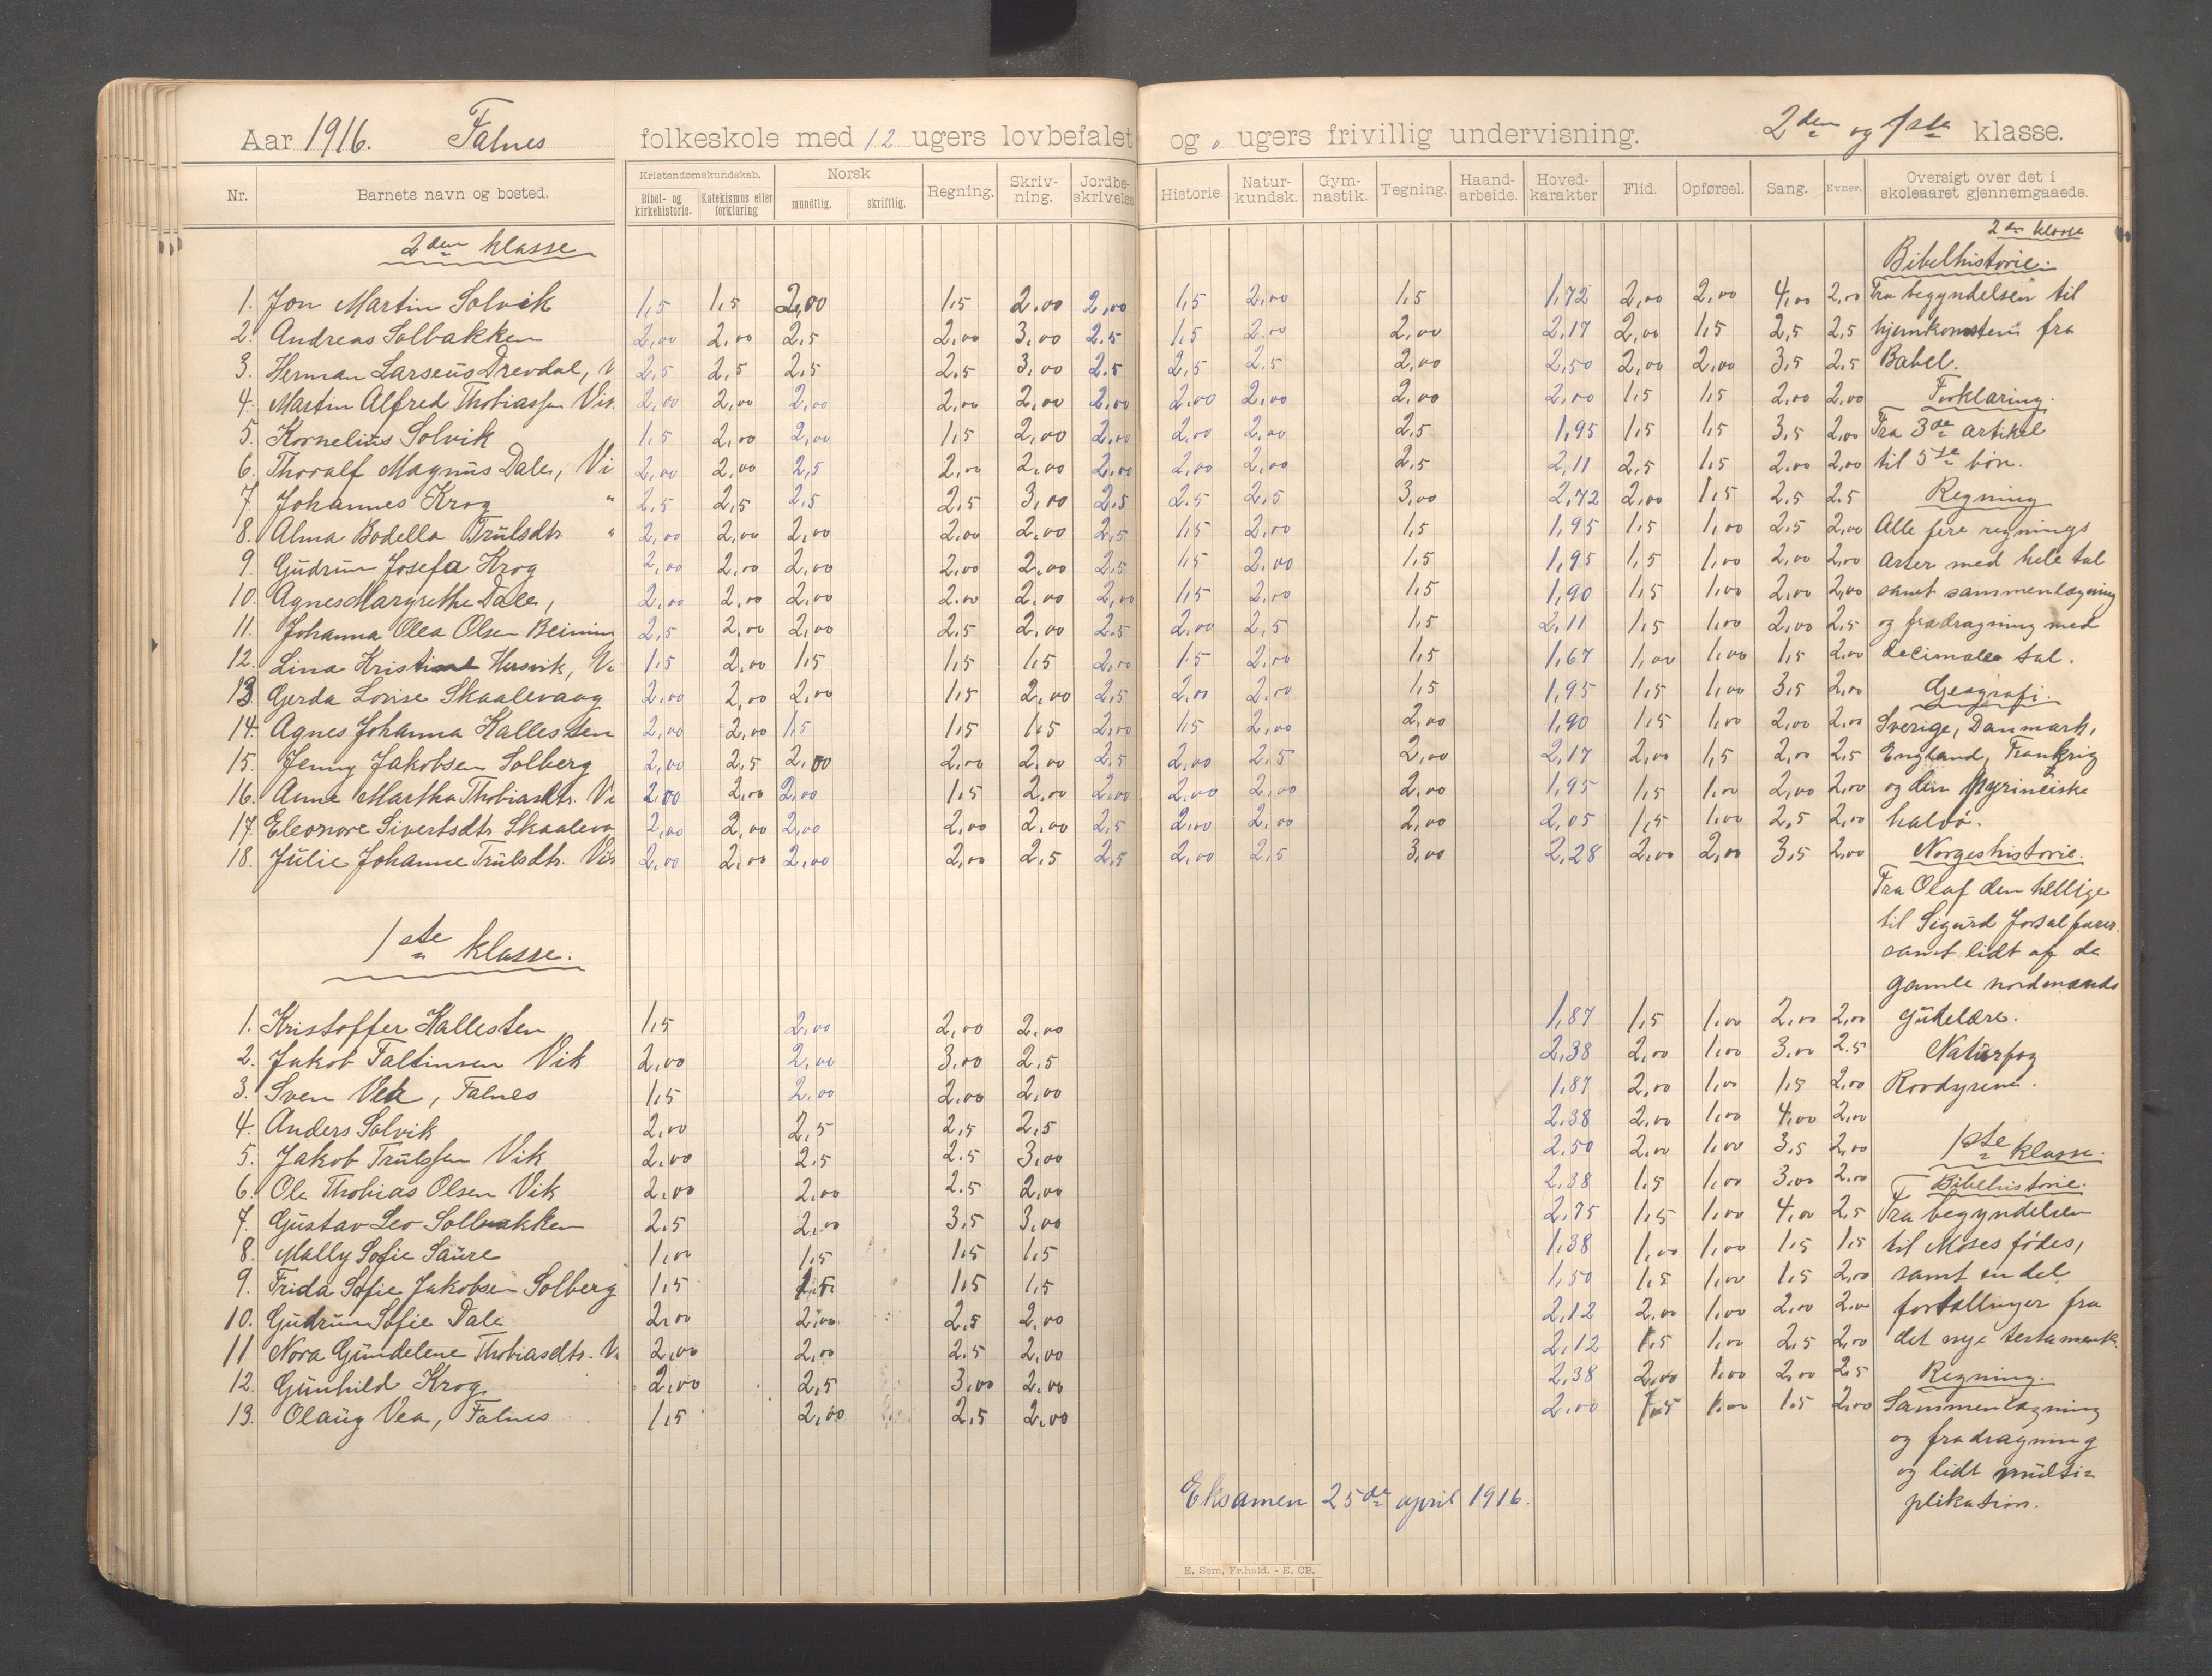 Aar 1916. Falnes folkeskole med 12 ugers lovbefalet og 0 ugers frivillig undervisning. 2den og 1ste klasse.
Nr. Barnets navn og bosted. Kristendomskundskab. Bibel- og kirkehistorie. Katekismus eller forklaring Norsk mundtlig. skriftlig. Regning. Skriv-ning. Jordbe-skrivelse Historie. Natur-kundsk. Gym-nastik. Tegning. Haand-arbeide. Hoved-karakter Flid. Opførsel. Sang. Evner. Oversigt over det i skoleaaret gjennemgaaede.
2den klasse
1. Jon Martin Solvik 1,5 1,5 2,00 1,5 2,00 2,00 1,5 2,00 1,5 1,72 2,00 2,00 4,00 2,00
2. Andreas Solbakken 2,00 2,00 2,5 2,00 3,00 2,5 1,5 2,00 2,00 2,17 2,00 1,5 2,5 2,5
3. Herman Larseus Drevdal, V 2,5 2,5 2,5 2,5 3,00 2,5 2,5 2,5 2,00 2,50 2,00 2,00 3,5 2,5
4. Martin Alfred Thobiassen Vik 2,00 2,00 2,00 2,00 2,00 2,00 2,00 2,00 2,00 2,00 1,5 1,5 2,00 2,00
5. Kornelius Solvik 1,5 2,00 2,00 1,5 2,00 2,00 2,00 2,00 2,5 1,95 1,5 1,5 3,5 2,00
6. Thoralf Magnus Dale, Vi 2,00 2,00 2,5 2,00 2,00 2,00 2,00 2,00 2,5 2,11 2,5 1,5 2,00 2,00
7. Johannes Krog " 2,5 2,5 2,5 2,5 3,00 2,5 2,5 2,5 3,00 2,72 2,00 1,5 2,5 2,5
8. Alma Bodella Trulsdtr. " 2,00 2,00 2,00 2,00 2,00 2,5 1,5 2,00 1,5 1,95 1,5 1,00 2,5 2,00
9. Gudrun Josefa Krog 2,00 2,00 2,00 2,00 2,00 2,5 1,5 2,00 1,5 1,95 1,5 1,00 2,00 2,00
10. Agnes Margrethe Dale, 2,00 2,00 2,00 2,00 2,00 2,00 1,5 2,00 1,5 1,90 1,5 1,00 2,00 2,00
11. Johanna Olea Olsen Beining 2,5 2,00 2,00 2,5 2,00 2,5 2,00 2,5 1,5 2,11 1,5 1,00 2,00 2,5
12. Lina Kristine Husvik, Vi 1,5 2,00 1,5 1,5 1,5 2,00 1,5 2,00 1,5 1,67 1,00 1,00 1,5 2,00
13 Gerda Lovise Skaalevaag 2,00 2,00 2,00 1,5 2,00 2,5 2,00 2,00 1,5 1,95 1,5 1,00 3,5 2,00
14. Agnes Johanna Kallesten 2,00 2,00 1,5 1,5 1,5 2,00 1,5 2,00 2,00 1,90 1,5 1,00 2,00 2,00
15. Jenny Jakobsen Solberg 2,00 2,5 2,00 2,00 2,00 2,5 2,00 2,5 2,00 2,17 2,00 1,5 2,00 2,5
16. Anne Martha Thobiasdtr. Vi 2,00 2,00 2,00 1,5 2,00 2,00 2,00 2,00 2,00 1,95 1,5 1,00 2,00 2,00
17. Eleonore Sivertsdtr. Skaaleva 2,00 2,00 2,00 2,00 2,00 2,5 2,00 2,00 2,00 2,05 1,5 1,00 2,5 2,00
18. Julie Johanne Trulsdtr. Vik 2,00 2,00 2,00 2,00 2,5 2,5 2,00 2,5 3,00 2,28 2,00 2,00 3,5 2,00
1ste klasse.
1. Kristoffer Kallesten 1,5 2,00 2,00 2,00 1,87 1,5 1,00 2,00 2,00
2. Jakob Faltinsen Vik 2,00 2,00 3,00 2,5 2,38 2,00 1,00 3,00 2,5
3. Sven Vea, Falnes 1,5 2,00 2,00 2,00 1,87 2,00 1,00 1,5 2,00
4. Anders Solvik 2,00 2,5 2,5 2,5 2,38 2,00 1,00 4,00 2,00
5. Jakob Trulssen Vik 2,00 2,5 2,5 3,00 2,50 2,00 1,00 3,5 2,00
6. Ole Thobias Olsen Vik 2,00 2,00 2,5 2,00 2,38 1,5 1,00 3,00 2,00
7. Gustav Leo Solbakken 2,5 2,00 3,5 3,00 2,75 1,5 1,00 4,00 2,5
8. Mally Sofie Saure 1,00 1,5 1,5 1,5 1,38 1,00 1,00 1,5 1,5
9. Frida Sofie Jakobsen Solberg 1,5 1,5 1,5 1,5 1,50 1,5 1,00 1,5 2,00
10. Gudrun Sofie Dale 2,00 2,00 2,5 2,00 2,12 2,00 1,00 2,00 2,00
11 Nora Gundelene Thobiasdtr. V 2,00 2,00 2,5 2,00 2,12 1,5 1,00 2,5 2,00
12. Gunhild Krog 2,00 2,5 3,00 2,00 2,38 2,00 1,00 2,00 2,5
13. Olaug Vea, Falnes 1,5 2,00 2,5 2,00 2,00 1,5 1,00 1,5 2,00
2den klasse
Bibelhistorie.
Fra begyndelsen til
hjemkomsten fra
Babel.
Forklaring.
Fra 3de artikel
til 5te bøn.
Regning
Alle fire regnings
arter med hele tal
samt sammenlægning
og fradragning med
decimale tal.
Geografi.
Sverige, Danmark,
England, Frankrig
og den pyrineiske
halvø.
Norgeshistorie.
Fra Olaf den hellige
til Sigurd Jorsalfarer
samt lidt af de
gamle nordmænds
gudelære.
Naturfag
Rovdyrene.
1ste klasse.
Bibelhistorie.
Fra begyndelsen
til Moses fødes,
samt en del
fortællinger fra
det nye testamente.
Regning.
Sammenlægning
og fradragning
og lidt multi-
plikation.
Eksamen 25de april 1916.
E. Sem, Fr.hald. - E. CB.